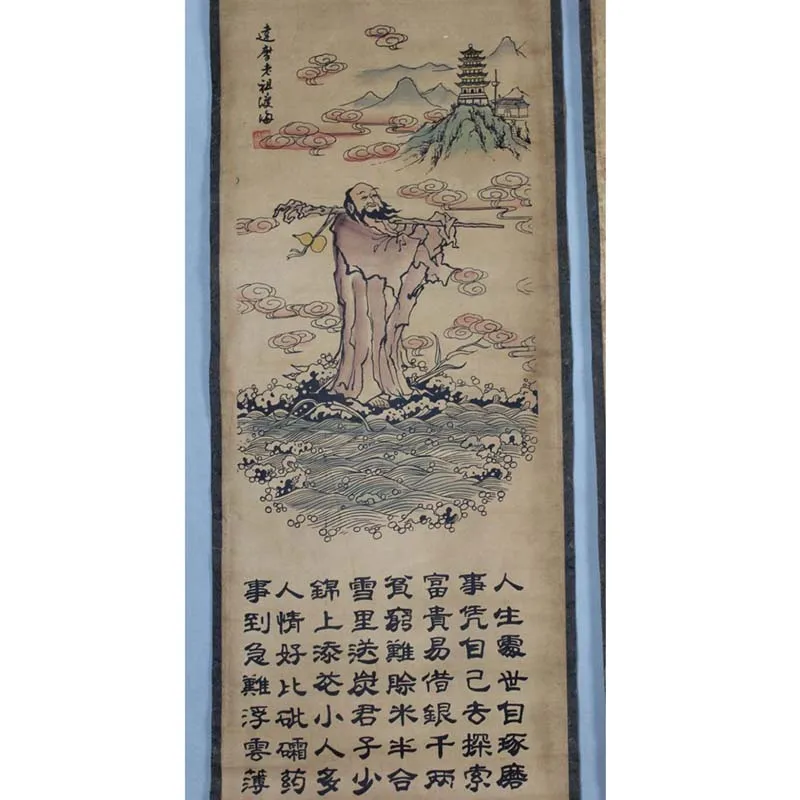 達摩老祖渡海
人生處世自琢磨
事凭自己去探索
富貴易借銀千两
貧窮難賒米半合
雪里送炭君子少
錦上添花小人多
人情好比砒礵药
事到急難浮雲薄